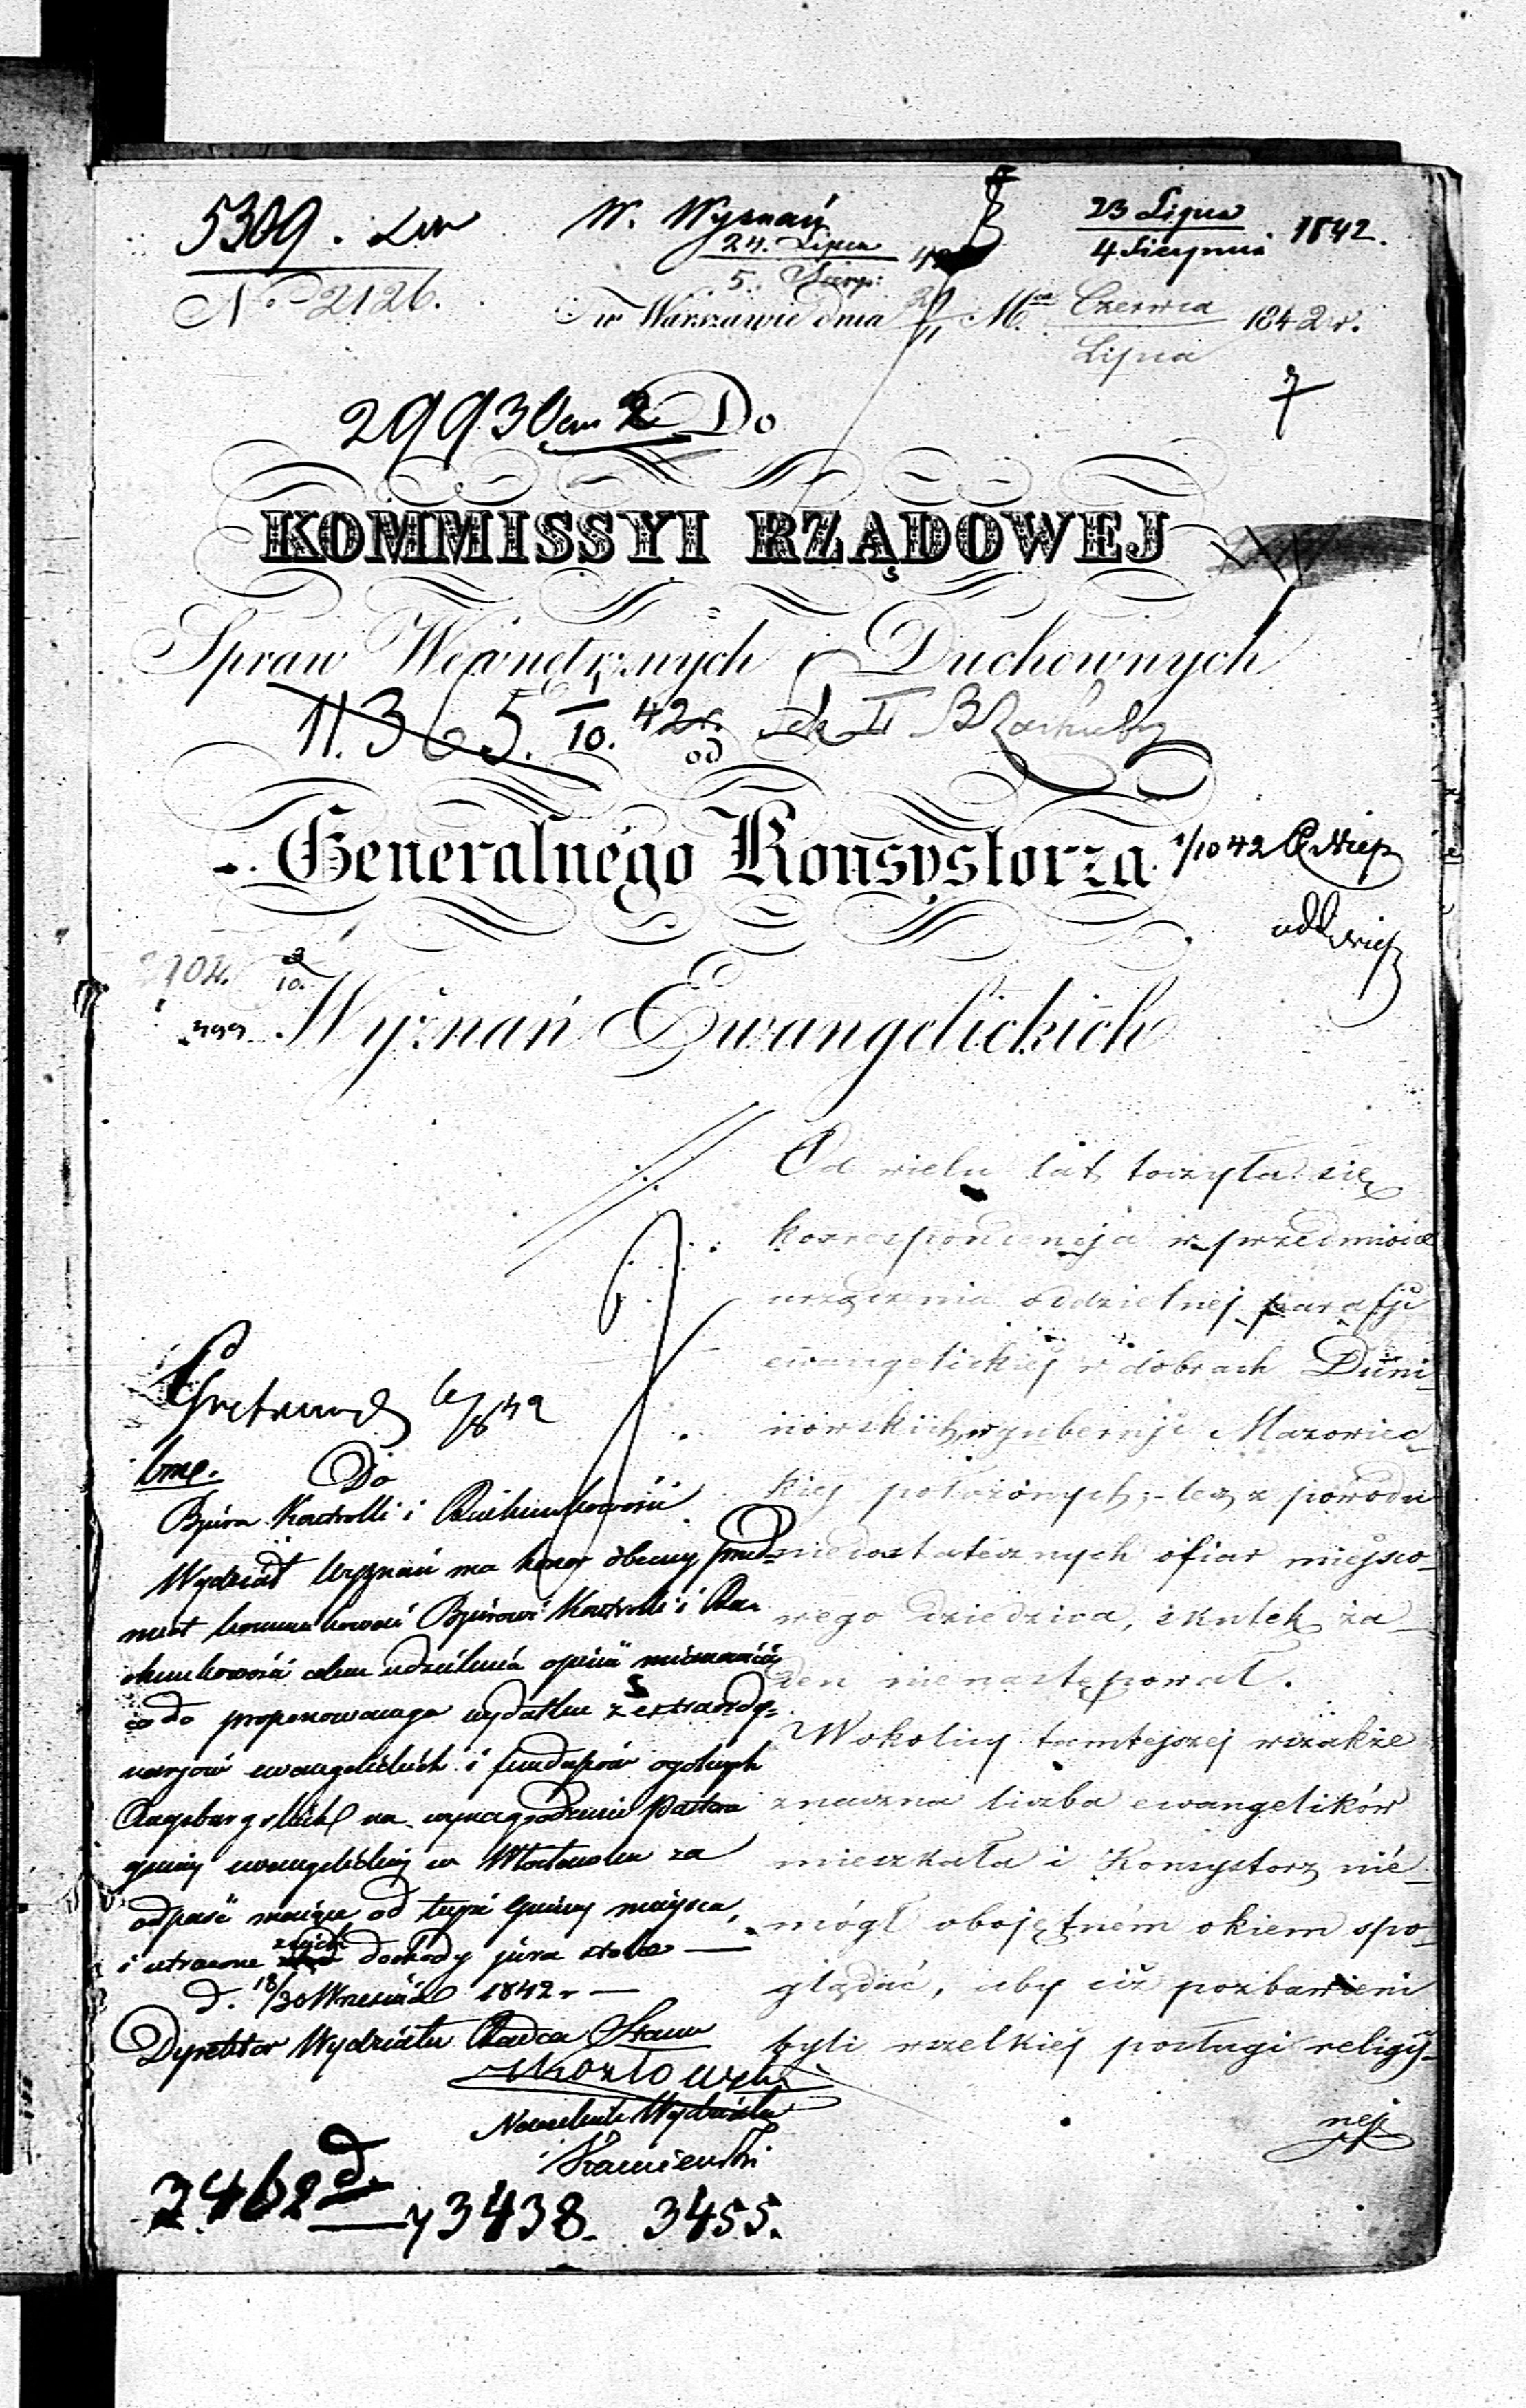 5309.
W. Wyznań
24. Lipca
5. Sierp: 42
23 Lipca
4 Sierpnia 1842.
No 2126.
w Warszawie dnia Mca Czerwca
Lipca 1842 r.
7
29930 Do
KOMMISSYI RZĄDOWEJ
Spraw Wewnętrznych i Duchownych
11.365. 1/10. 42 r.
od
Generalnégo Konsystorza
1/10 42
3/10.
Wyznań Ewangelickich
Od wielu lat, toczyła się
korrespondencja w przedmiocie
urządzenia oddzielnej parafji
ewangelickiéj w dobrach Duni-
nowskich, w gubernji Mazowiec-
kiej położonych; lecz z powodu
niedostatecznych ofiar miejsco-
wego dziedzica, skutek ża-
den nie następował.
W okolicy tamtejszej wszakże
znaczna liczba ewangelików
mieszkała i Konsystorz nie-
mógł obojętném okiem spo-
glądać, aby ciż pozbawieni
byli wszelkiéj posługi religij-
nej
Do
Bjura Kontrolli i Rachunkowości
Wydział Wyznań ma honor obecny przed-
miot kommunikować Bjurowi Kontrolli i Ra-
chunkowości celem udzielenia opinii
co do proponowanego wydatku z extraordy-
narjów ewangelickich i funduszów ogólnych
Augsburgskich na wynagrodzenie Pastora
gminy ewangelickiej w Włocławku za
odpaść mające od tejże Gminy miejsca,
i utracone z tych dochody jura stolae —
d. 18/30 Września 1842 r —
Dyrektor Wydziału Radca Stanu
Kozłowski
Naczelnik Wydziału
Kamieński
3438. 3455.